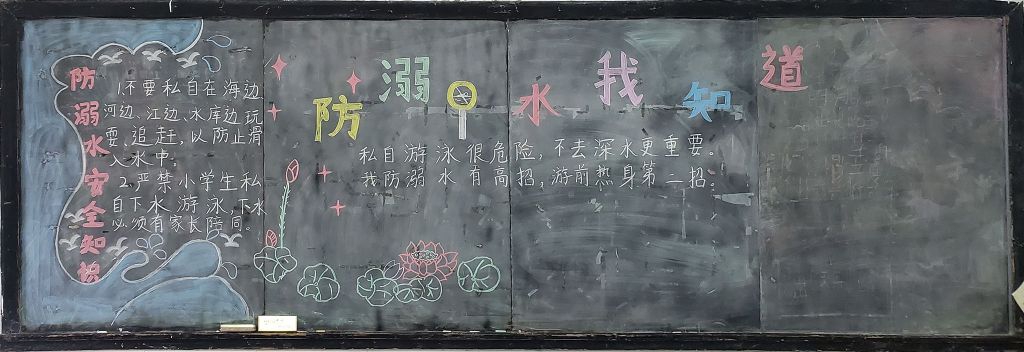 防溺水安全知识
1.不要私自在海边
河边、江边、水库边玩
耍、追赶,以防止滑
入水中。
2.严禁小学生私
自下水游泳,下水
必须有家长陪同。
防溺水我知道
私自游泳很危险,不去深水更重要。
我防溺水有高招,游前热身第一招。